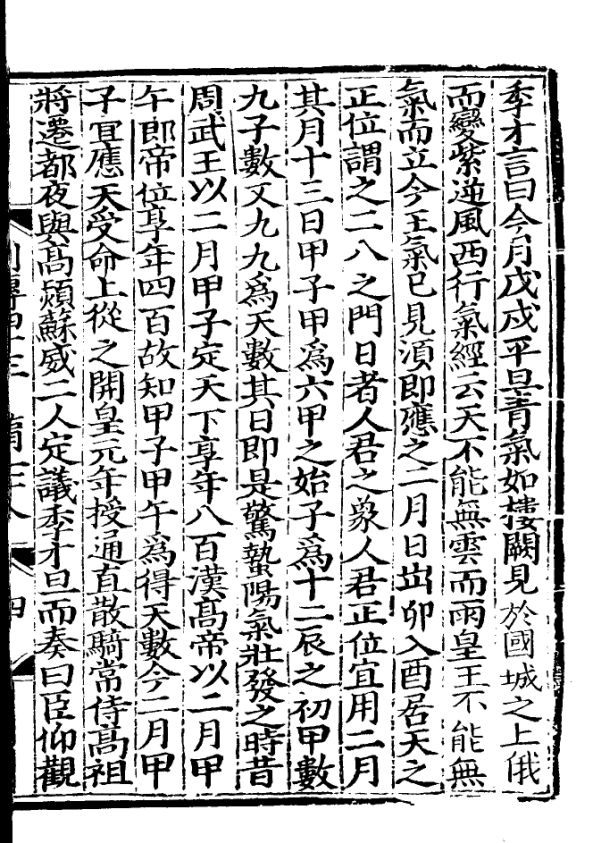 季才言曰今月戊戌平旦青氣如樓闕見於國城之上俄
而變紫逆風西行氣經云天不能無雲而雨皇王不能無
氣而立今王氣已見須即應之二月日出卯入酉居天之
正位謂之二八之門日者人君之象人君正位宜用二月
其月十三日甲子甲爲六甲之始子爲十二辰之初甲數
九子數又九九爲天數其日即是驚蟄陽氣壯發之時昔
周武王以二月甲子定天下享年八百漢髙帝以二月甲
午即帝位享年四百故知甲子甲午爲得天數今二月甲
子宜應天受命上從之開皇元年授通直散騎常侍髙祖
將遷都夜與髙熲蘇威二人定議季才旦而奏曰臣仰觀